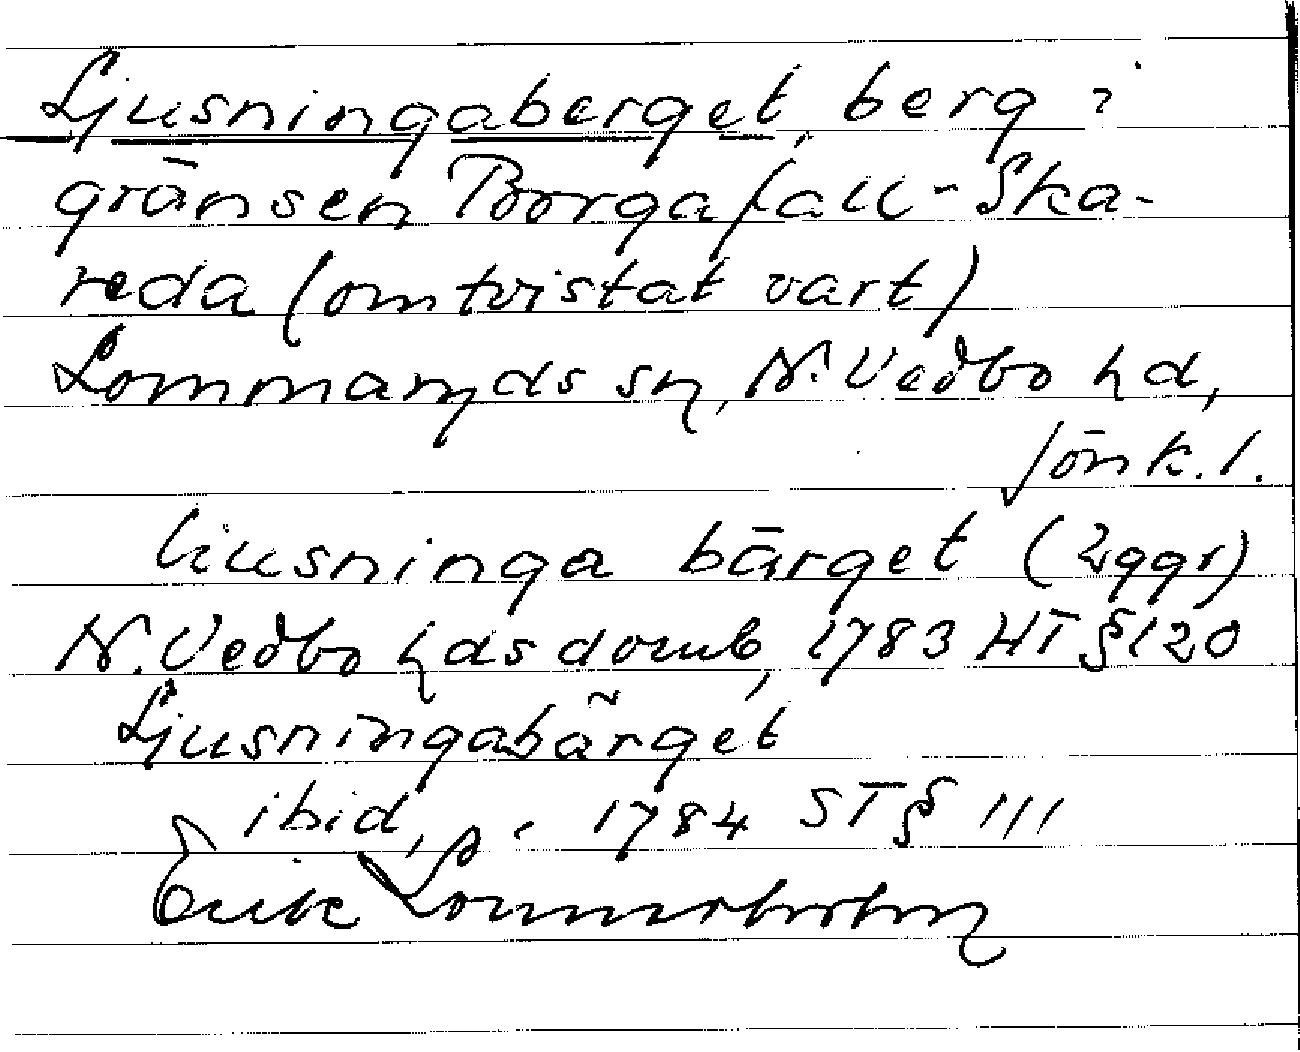 Ljusningaberget, berg i
gränsen Borgafall-Ska-
reda (omtvistat vart)
Lommaryds sn, N. Vedbo hd,
Jönk. l.
liusninga bärget (2ggr)
N. Vedbo hds domb, 1783 HT § 120
Ljusningabärget
ibid, 1784 ST § 111
Erik